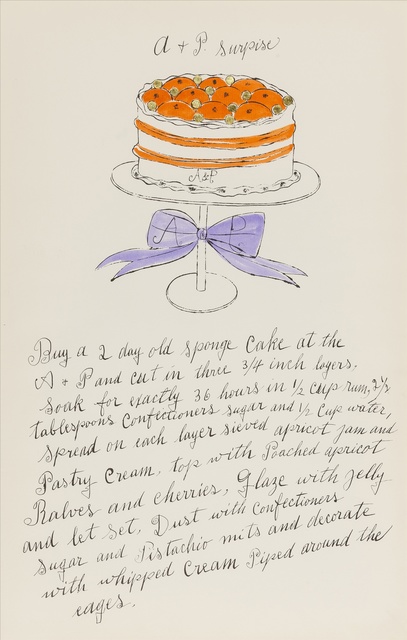 A & P surpise
A&P
A P
Buy a 2 day old sponge cake at the
A & P and cut in three 3/4 inch layers.
Soak for exactly 36 hours in 1/2 cup rum, 2 1/2
tablespoons Confectioners sugar and 1/2 Cup water,
Spread on each layer sieved apricot jam and
Pastry Cream, top with Poached apricot
Halves and cherries, Glaze with Jelly
and let set. Dust with Confectioners
sugar and Pistachio nuts and decorate
with whipped Cream Piped around the
edges.